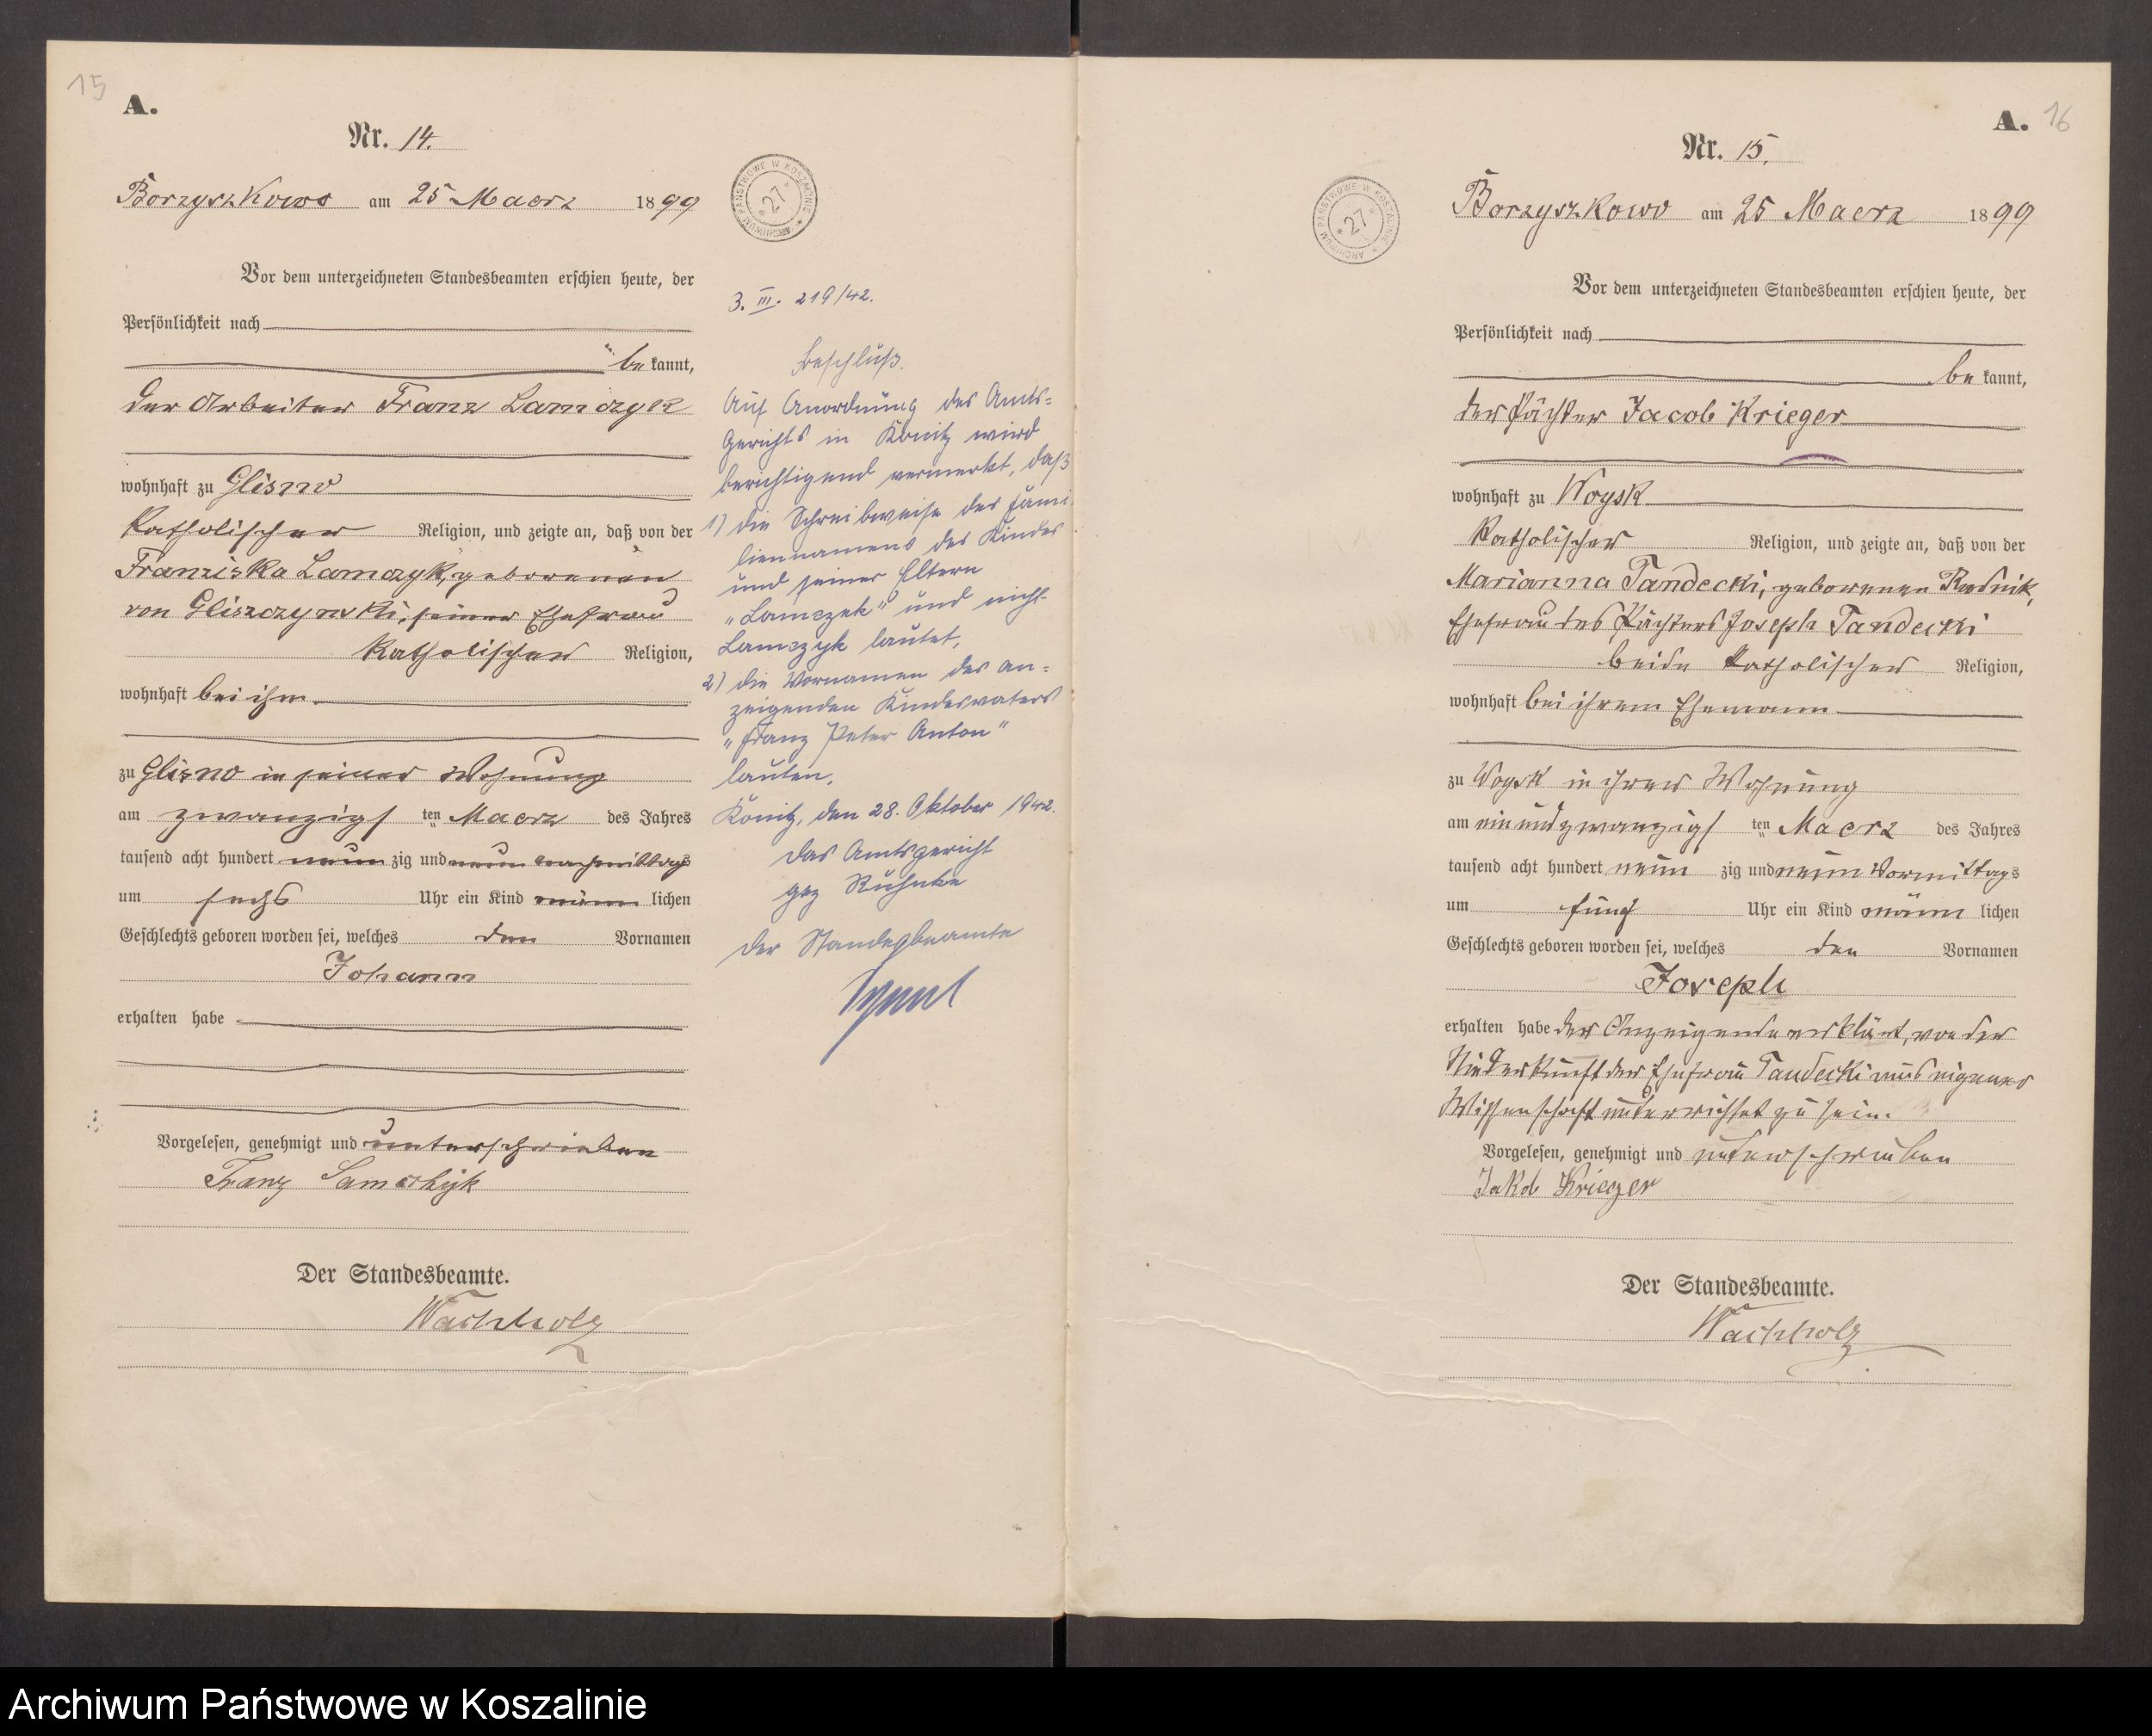 15
A.
Nr. 14.
Borzyszkowo am 25 Maerz 1899
Vor dem unterzeichneten Standesbeamten erschien heute, der
Persönlichkeit nach
be kannt,
der Arbeiter Franz Lamczyk
wohnhaft zu Glisno
katholischer Religion, und zeigte an, daß von der
Franziska Lamczyk, geborenen
von Gliszczynski, seiner Ehefrau
katholischer Religion,
wohnhaft bei ihm
zu Glisno in seiner Wohnung
am zwanzigs ten Maerz des Jahres
tausend acht hundert neun zig und neun nachmittags
um sechs Uhr ein Kind männ lichen
Geschlechts geboren worden sei, welches den Vornamen
Johann
erhalten habe
Vorgelesen, genehmigt und unterschrieben
Franz
Der Standesbeamte.
Wachholz
ARCHIWUM PAŃSTWOWE W KOSZALINIE
* 27 *
3. III. 219/42.
Beschluß.
Auf Anordnung des Amts-
gerichts in Konitz wird
berichtigend vermerkt, daß
1) die Schreibweise des Fami-
liennamens des Kindes
und seiner Eltern
"Lamczek" und nicht
Lamczyk lautet,
2) die Vornamen des an-
zeigenden Kindesvaters
"Franz Peter Anton"
lauten.
Konitz, den 28. Oktober 1942.
Das Amtsgericht
gez
Der Standesbeamte
A. 16
Nr. 15.
ARCHIWUM PAŃSTWOWE W KOSZALINIE
* 27 *
Borzyszkowo am 25 Maerz 1899
Vor dem unterzeichneten Standesbeamten erschien heute, der
Persönlichkeit nach
be kannt,
der Pächter Jacob Krieger
wohnhaft zu Woysk
katholischer Religion, und zeigte an, daß von der
Marianna Tandecki, geborenen Rudnik,
Ehefrau des Pächters Joseph Tandecki
beide katholischer Religion,
wohnhaft bei ihrem Ehemann
zu Woysk in ihrer Wohnung
am einundzwanzigs ten Maerz des Jahres
tausend acht hundert neun zig und neun Vormittags
um fünf Uhr ein Kind männ lichen
Geschlechts geboren worden sei, welches den Vornamen
Joseph
erhalten habe der Anzeigende erklärt, von der
Niederkunft der Ehefrau Tandecki aus eigener
Wissenschaft unterrichtet zu sein.
Vorgelesen, genehmigt und unterschrieben
Jakob Krieger
Der Standesbeamte.
Wachholz
Archiwum Państwowe w Koszalinie